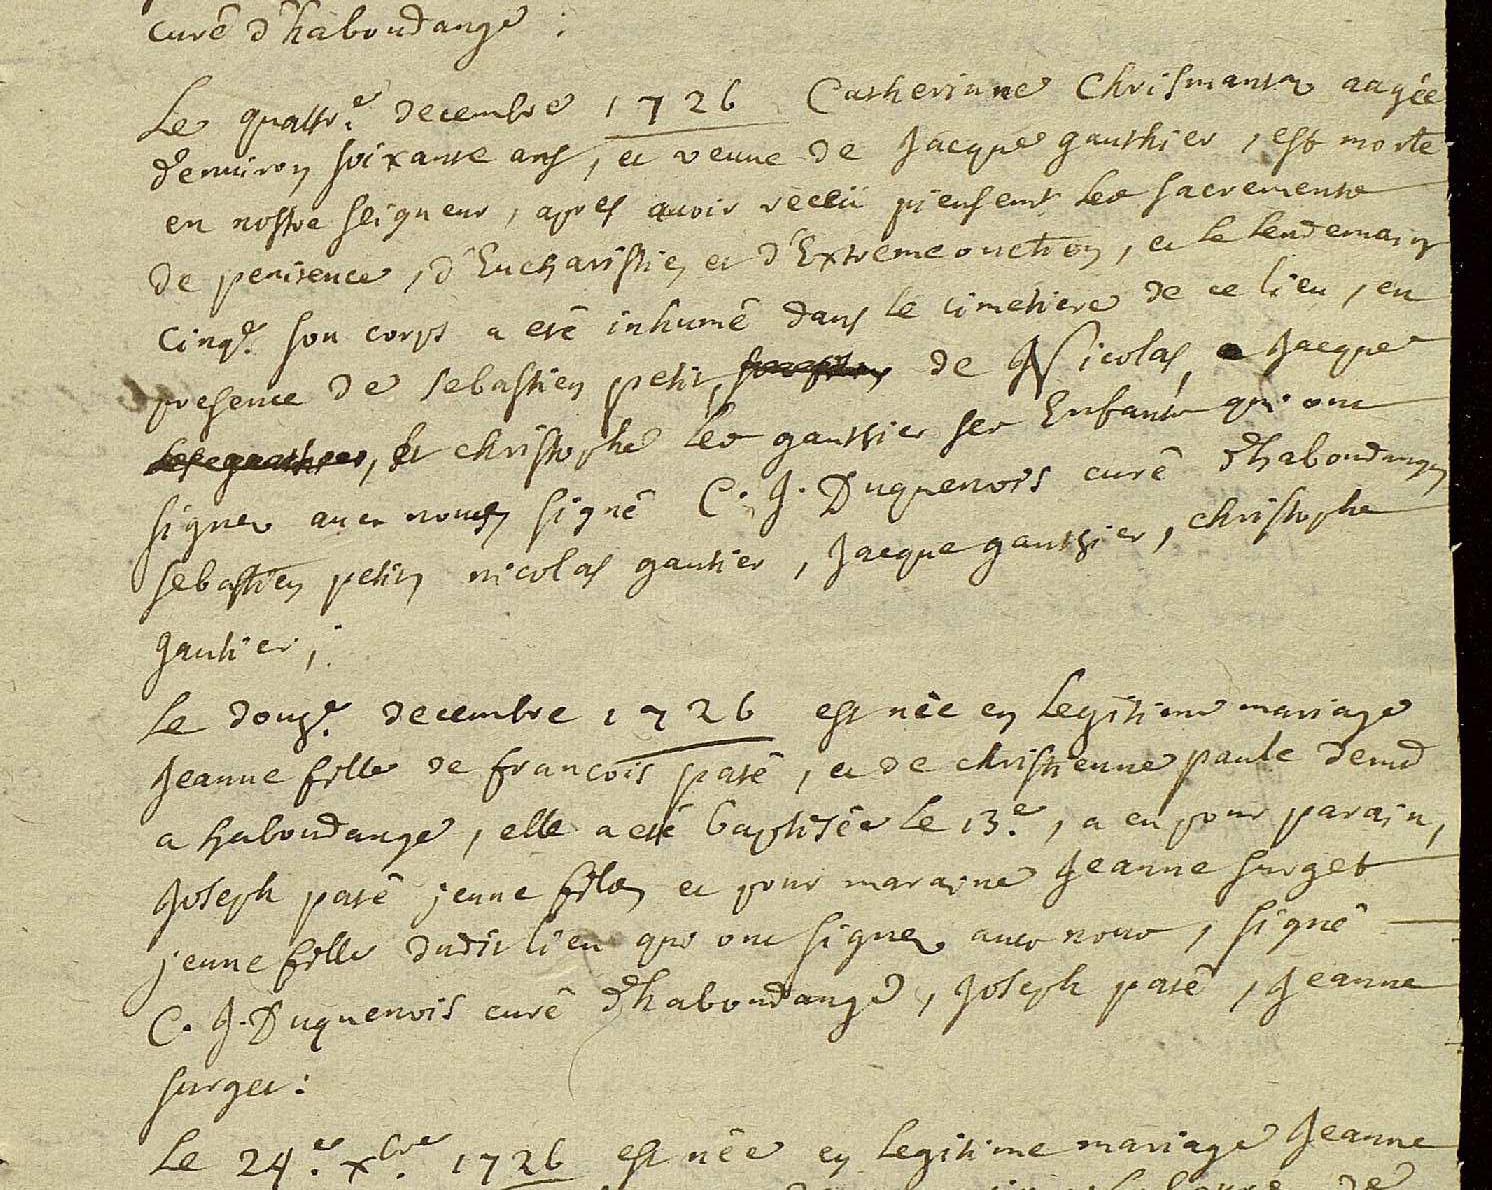 curé d'haboudange :
Le quattre. decembre 1726 Catherinne Chrismant aagée
d'environ soixante ans, et veuve de Jacque gauthier, est morte
en nostre seigneur, apres avoir receü pieusemt les sacrements
de penitence, d'Eucharistie, et d'Extreme onction, et le lendemain
cinqe. son corps a eté inhumé dans le cimetiere de ce lieu, en
presence de sebastien petit, de Nicolas, Jacque
et christophe les gautier ses Enfants qui ont
signez avec nous, signé C. J. Duquenois curé d'haboudange,
sebastien petit, nicolas gautier, Jacque gautier, christophe
gautier ;
Le douze. decembre 1726 est née en legitime mariage
Jeanne fille de francois paté, et de christienne paule demt
a haboudange, elle a eté baptisée le 13.e, a eu pour parain,
Joseph paté jeune fils, et pour maraine Jeanne surget
jeune fille dudit lieu qui ont signez avec nous, signé
C. J. Duquenois curé d'haboudange, Joseph paté, Jeanne
surget :
Le 24.e xbre. 1726 est née en legitime mariage Jeanne
de